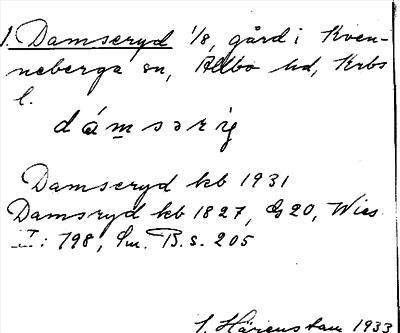 1. Damseryd 1/8, gård i Kven-
neberga sn, Allbo hd, Krbs
l.
dámsәrig
Damseryd kb 1931
Damsryd kb 1827, G20, Wies.
II: 798, Sm. B. s. 205
S. Härenstam 1933